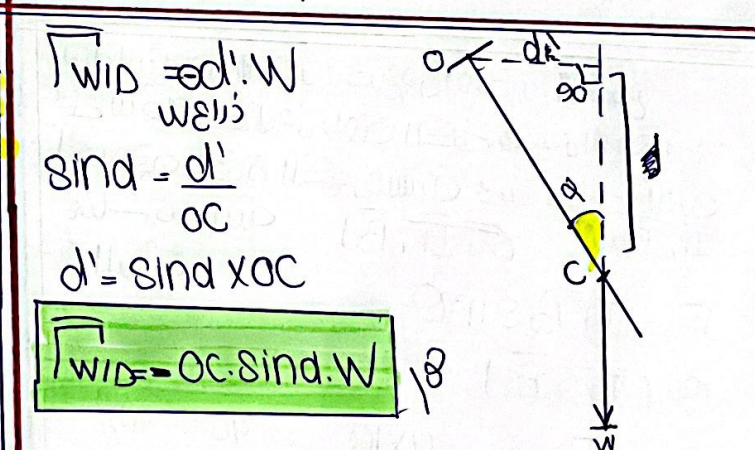 Γ̅W/D = -d'.W
ذراع W
sinα = d'/OC
d' = sinα × OC
Γ̅W/D = -OC.sinα.W
O
d'
90
α
C
W